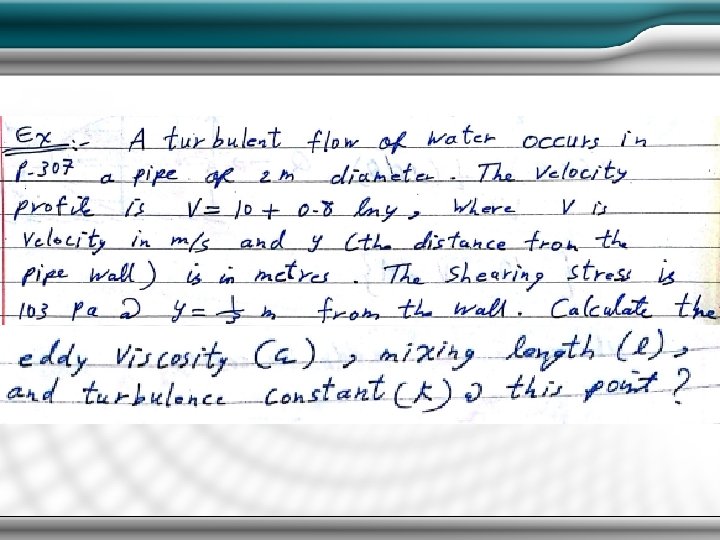 Ex :- A turbulent flow of water occurs in
P-307 a pipe of 2m diameter. The Velocity
profile is V = 10 + 0.8 lny, where V is
Velocity in m/s and y (the distance from the
pipe wall) is in metres. The Shearing Stress is
103 Pa @ y = 1/3 m from the wall. Calculate the
eddy Viscosity (ε), mixing length (l),
and turbulence constant (k) @ this point?